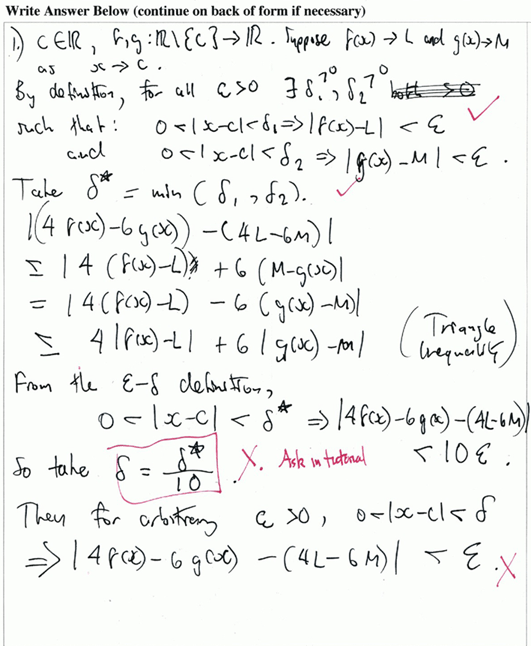 Write Answer Below (continue on back of form if necessary)
1.) c ∈ ℝ, f, g : ℝ\{c} → ℝ. Suppose f(x) → L and g(x) → M
as x → c.
By definition, for all ε > 0 ∃ δ₁ > 0, δ₂ > 0
such that: 0 < |x-c| < δ₁ ⇒ |f(x)-L| < ε ✓
and 0 < |x-c| < δ₂ ⇒ |g(x)-M| < ε.
Take δ* = min (δ₁, δ₂). ✓
|(4 f(x) - 6 g(x)) - (4L - 6M)|
≤ |4 (f(x)-L) + 6 (M-g(x)|
= |4(f(x)-L) - 6 (g(x)-M)|
≤ 4|f(x)-L| + 6|g(x)-M| (Triangle
Inequality)
From the ε-δ definition,
0 < |x-c| < δ* ⇒ |4f(x)-6g(x)-(4L-6M)|
< 10ε.
So take δ = δ*/10. X. Ask in tutorial
Then for arbitrary ε > 0, 0 < |x-c| < δ
⇒ |4f(x) - 6g(x) - (4L-6M)| < ε. X